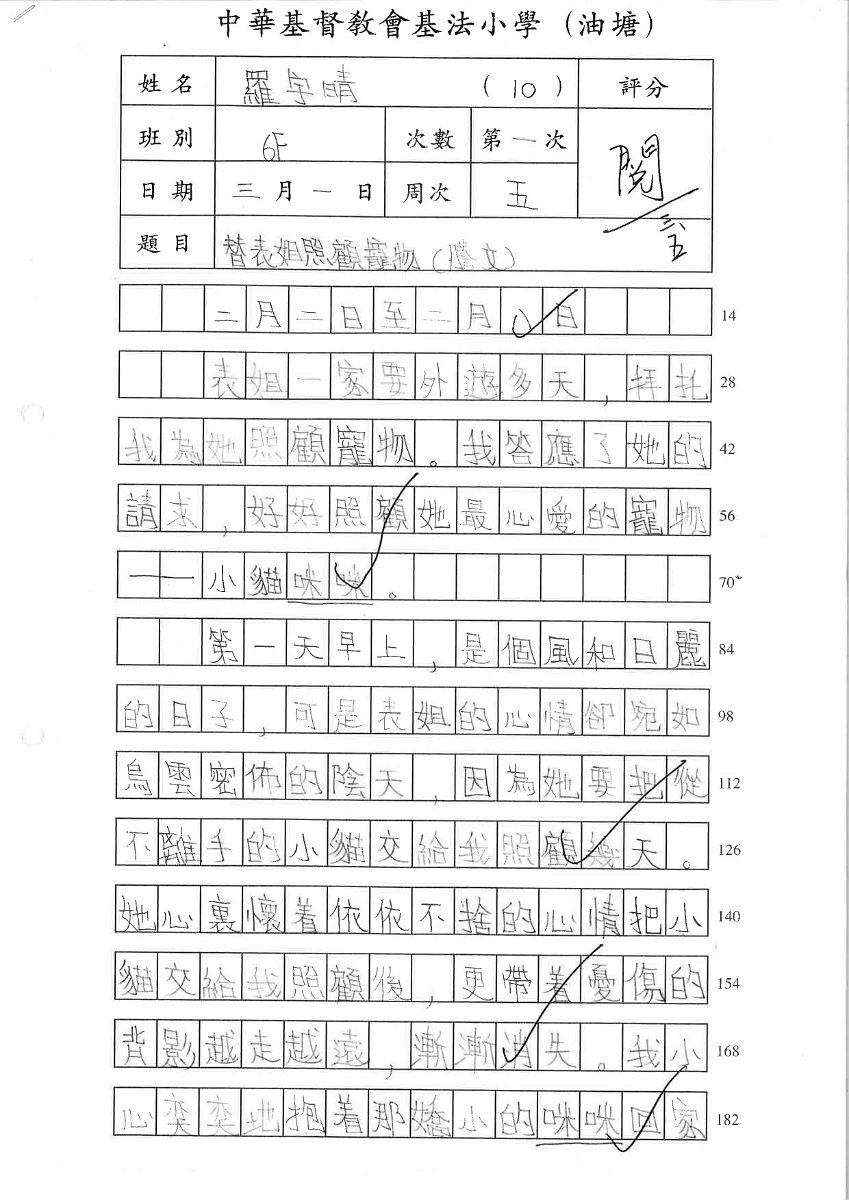 中華基督教會基法小學（油塘）
姓名 羅宇晴 （10） 評分
班別 6F 次數 第一次
閱
日期 三月一日 周次 五
三/五
題目 替表姐照顧寵物（謄文）
二月二日至二月八日 14
表姐一家要外遊多天，拜托 28
我為她照顧寵物。我答應了她的 42
請求，好好照顧她最心愛的寵物 56
——小貓咪咪。 70
第一天早上，是個風和日麗 84
的日子，可是表姐的心情卻宛如 98
烏雲密佈的陰天，因為她要把從 112
不離手的小貓交給我照顧幾天。 126
她心裏懷着依依不捨的心情把小 140
貓交給我照顧後，更帶着憂傷的 154
背影越走越遠，漸漸消失。我小 168
心奕奕地抱着那嬌小的咪咪回家 182